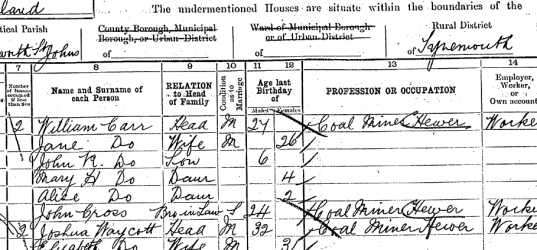 land The undermentioned Houses are situate within the boundaries of the
tical Parish County Borough, Municipal Ward of Municipal Borough Rural District
worth St Johns of Borough, or Urban District of or of Urban District of Tynemouth
7 8 9 10 11 12 13 14
Number of Rooms occupied if less than five Name and Surname of each Person RELATION to Head of Family Condition as to Marriage Age last Birthday of Males Females PROFESSION OR OCCUPATION Employer, Worker, or Own account
2 William Carr Head M 27 Coal Miner Hewer Worke
Jane Do Wife M 26
John R. Do Son 6
Mary H Do Daur 4
Alice Do Daur 2
John Cross Bro in Law S 24 Coal Miner Hewer Worke
2 Joshua Waycott Head M 32 Coal Miner Hewer Worke
Elizabeth Do Wife M 31